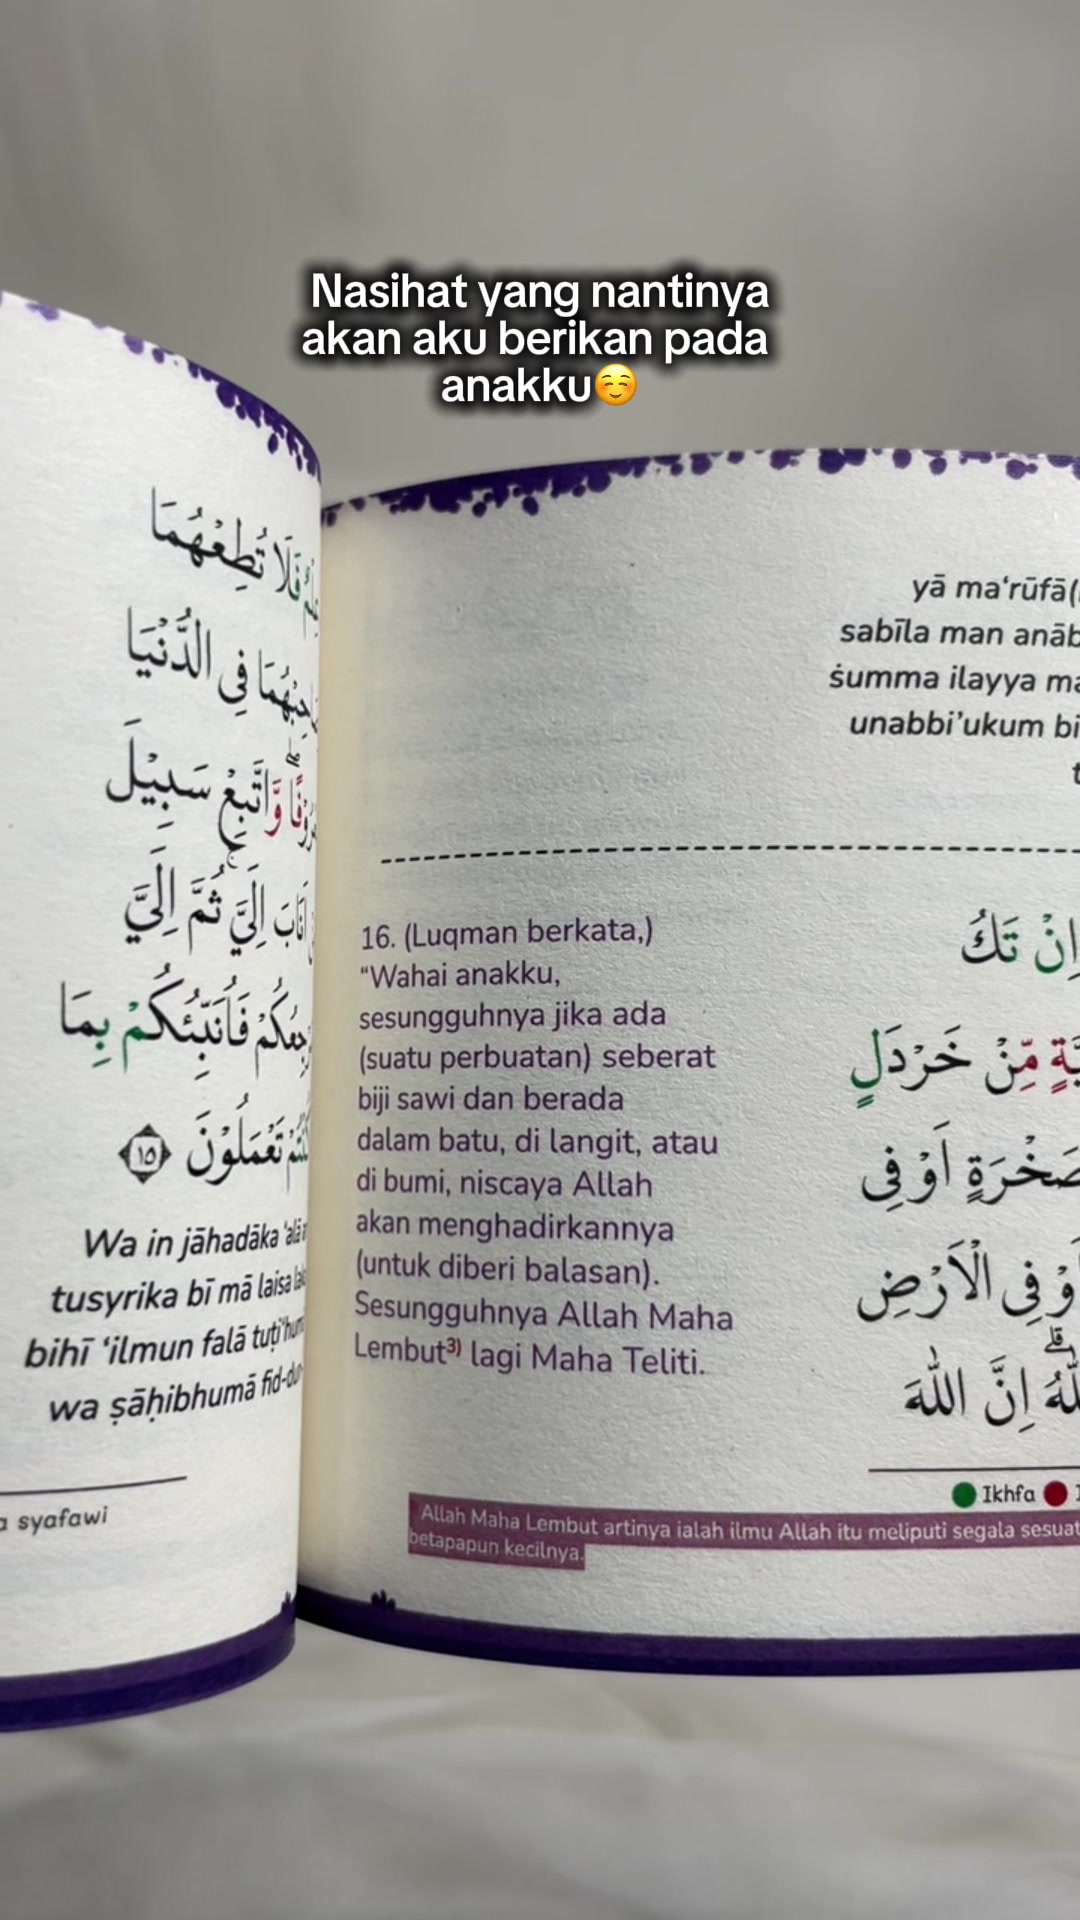 Nasihat yang nantinya
akan aku berikan pada
anakku☺️
فَلَا تُطِعْهُمَا
فِى الدُّنْيَا
وَّاتَّبِعْ سَبِيْلَ
اَنَابَ اِلَيَّ ثُمَّ اِلَيَّ
فَاُنَبِّئُكُمْ بِمَا
كُنْتُمْ تَعْمَلُوْنَ ١٥
Wa in jāhadāka 'alā
tusyrika bī mā laisa
bihī 'ilmun falā tuṭi'hu
wa ṣāḥibhumā fid-du
a syafawi
yā ma'rūfā(
sabīla man anāb
ṡumma ilayya ma
unabbi'ukum bi
t
16. (Luqman berkata,)
"Wahai anakku,
sesungguhnya jika ada
(suatu perbuatan) seberat
biji sawi dan berada
dalam batu, di langit, atau
di bumi, niscaya Allah
akan menghadirkannya
(untuk diberi balasan).
Sesungguhnya Allah Maha
Lembut³⁾ lagi Maha Teliti.
اِنْ تَكُ
مِّنْ خَرْدَلٍ
صَخْرَةٍ اَوْ فِى
اَوْ فِى الْاَرْضِ
اِنَّ اللّٰهَ
Ikhfa
Allah Maha Lembut artinya ialah ilmu Allah itu meliputi segala sesuat
betapapun kecilnya.